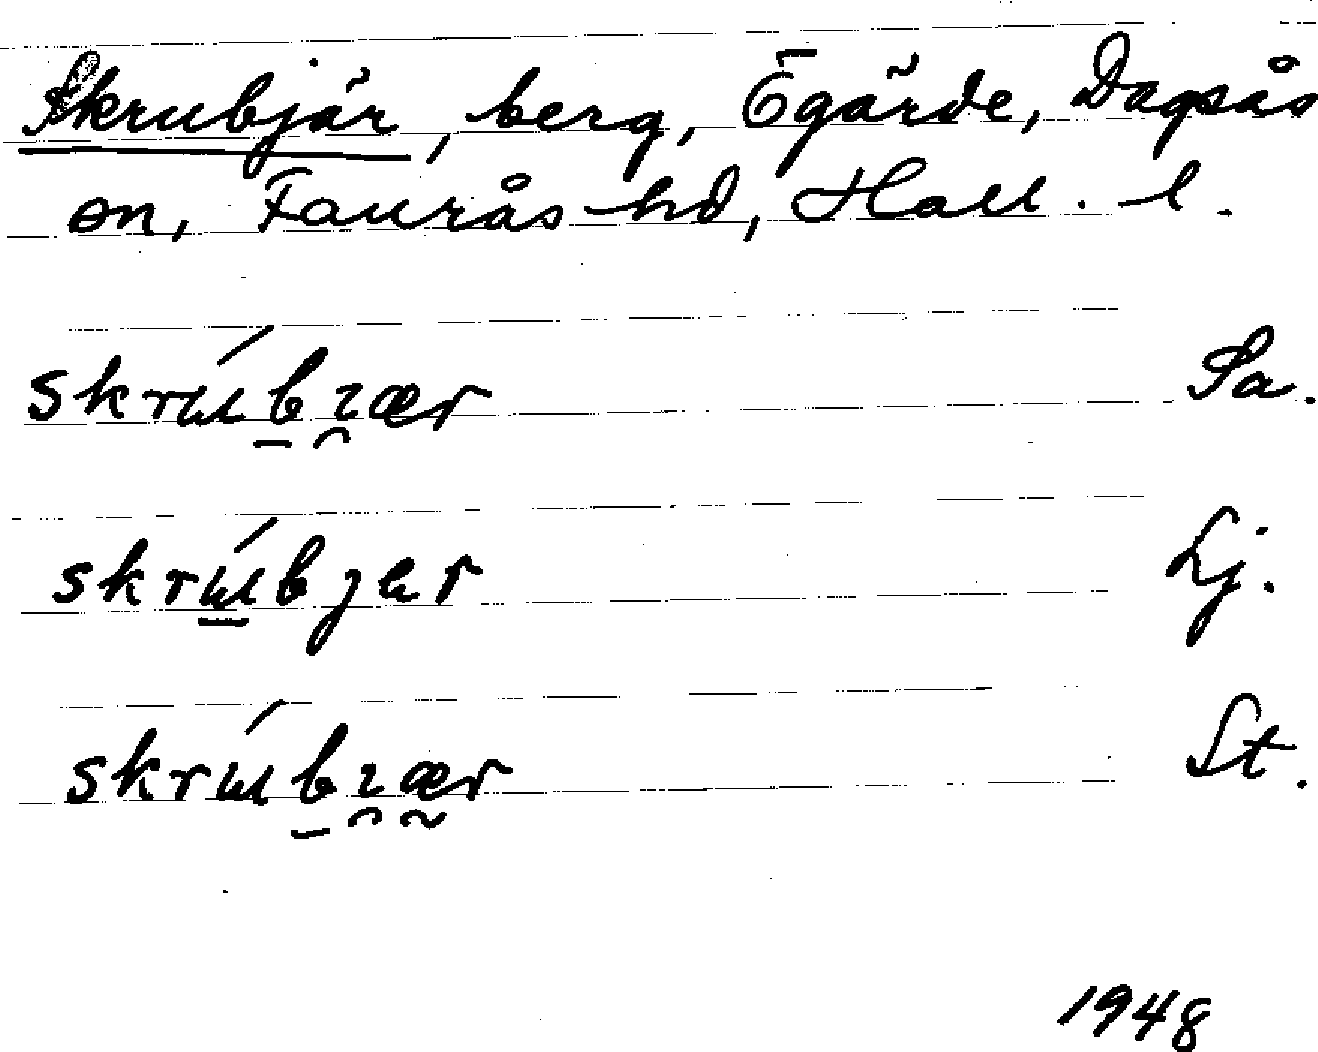 Skrubjär, berg, Ögärde, Dagsås
sn, Faurås hd, Hall. l.
skrɯ́bɿær Sa.
skrɯ́bȷɐr Lj.
skrɯ́bɿær St.
1948